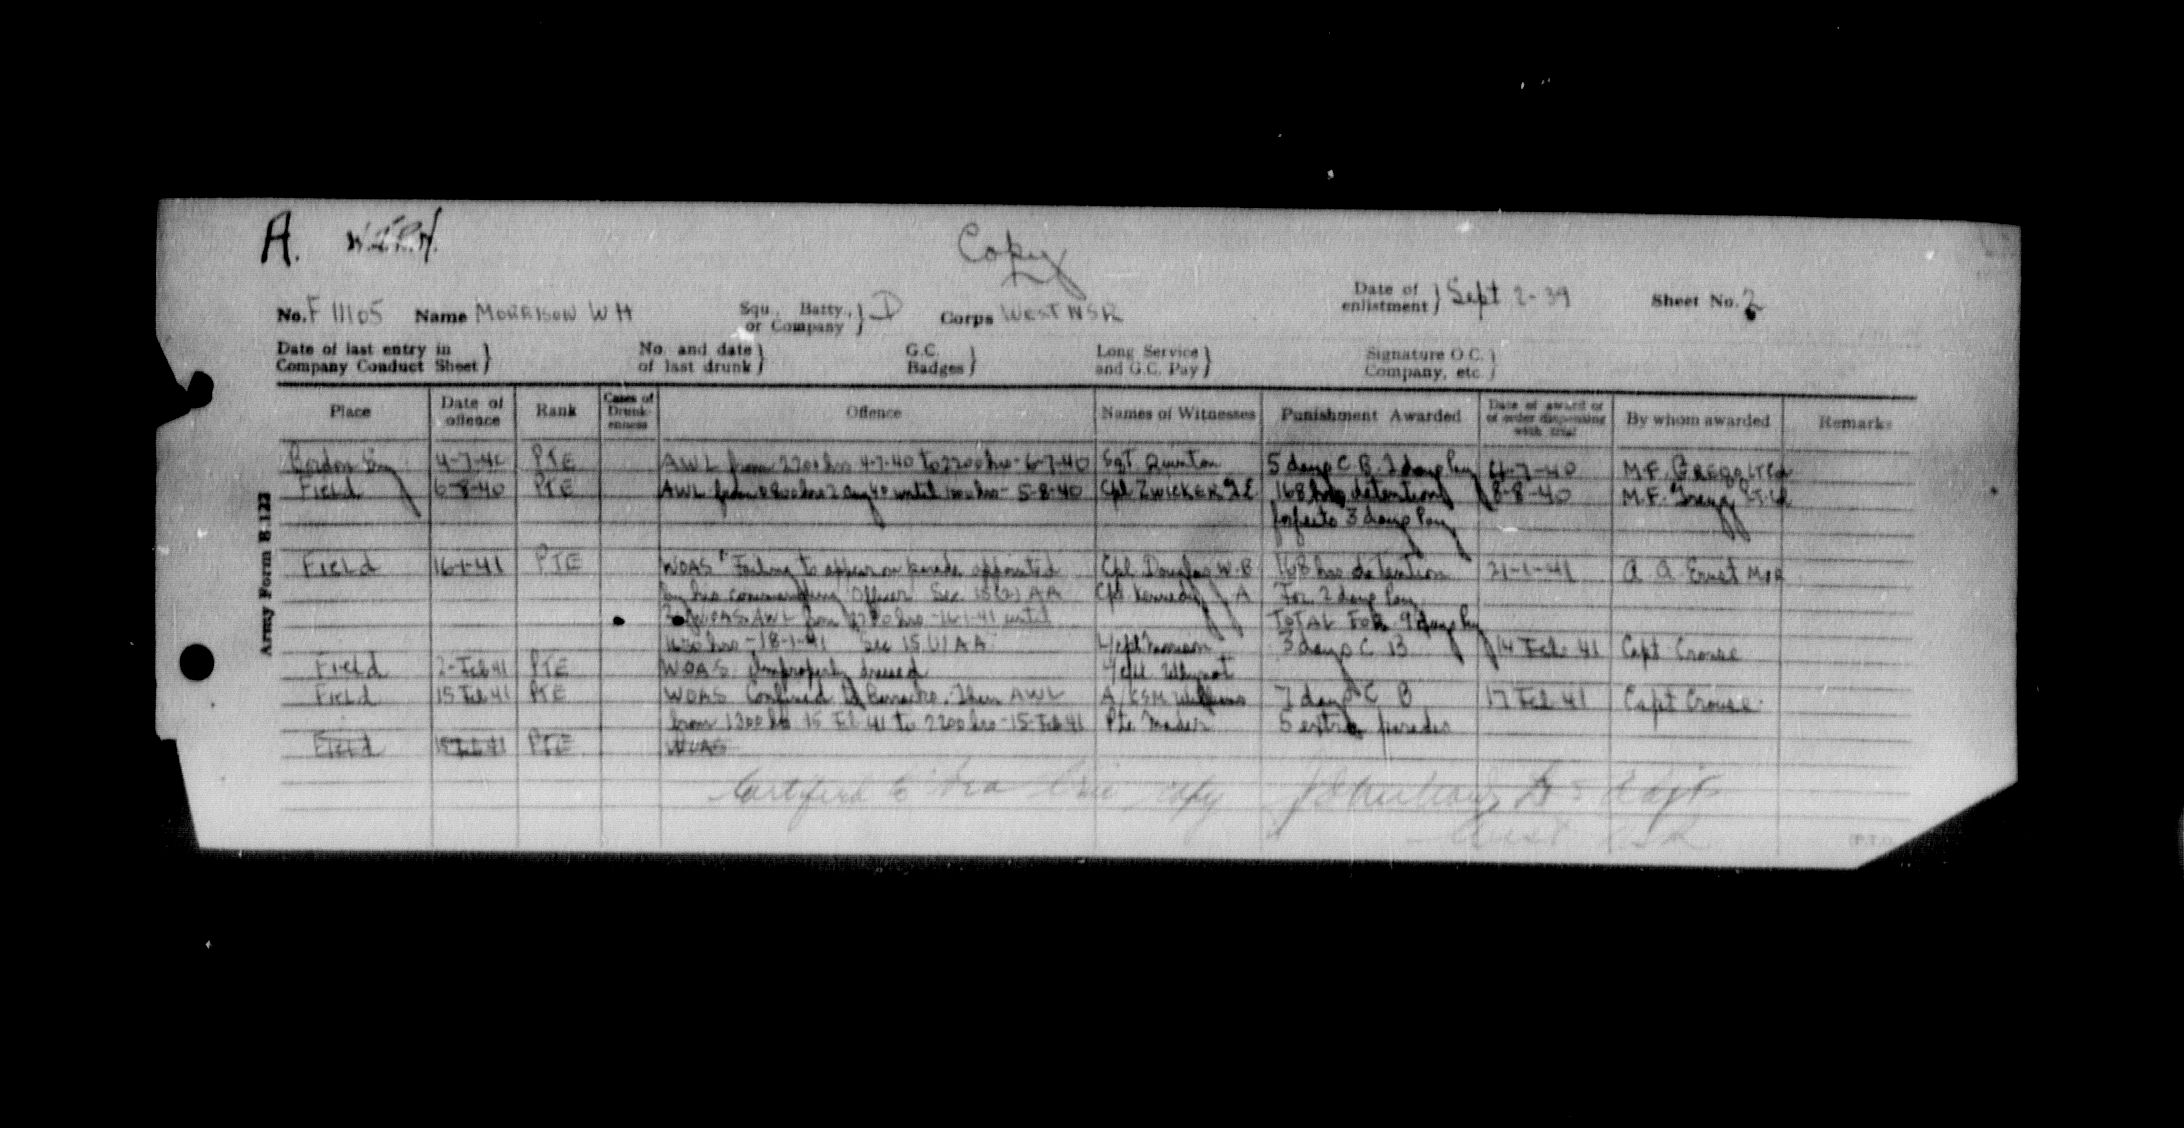 A.
Copy
No. F 11105 Name MORRISON W H Squ. Batty. or Company } D Corps WEST NSR Date of enlistment } Sept 2-39 Sheet No. 2
Date of last entry in Company Conduct Sheet } No. and date of last drunk } G.C. Badges } Long Service and G.C. Pay } Signature O.C. Company, etc. }
Place Date of offence Rank Cases of Drunkenness Offence Names of Witnesses Punishment Awarded Date of award or of order dispensing with trial By whom awarded Remarks
4-7-40 PTE AWL from 2200 hrs 4-7-40 to 2200 hrs - 6-7-40 Sgt 5 days C.B. 2 days Pay -7-40 M.F. GREGG
Field 6-8-40 PTE AWL from 0800 hrs 2 Aug 40 until hrs - 5-8-40 Cpl ZWICKER 168 hrs detention 8-8-40 M.F. Gregg
forfeits 3 days Pay
Field 16-1-41 PTE WOAS Failing to appear on parade appointed Cpl Douglas W.B 168 hrs detention 21-1-41 A. A. Ernst MJR
by his commanding Officer Sec AA Cpl Kennedy J A For 2 days Pay
WOAS AWL from 2200 hrs - 16-1-41 until TOTAL FOR 9 days Pay
hrs - 18-1-41 Sec 15 (1) AA 3 days C B 14 Feb 41 Capt Crouse
Field 2-Feb 41 PTE WOAS Improperly dressed
Field 15 Feb 41 PTE WOAS Confined to Barracks. Then AWL A/CSM Williams 7 days C B 17 Feb 41 Capt Crouse
from 1300 hrs 15 Feb 41 to 2200 hrs - 15-Feb 41 Pte Mader 5 extra parades
Field PTE WOAS
Certified to be a true copy
West NSR
Army Form B.122